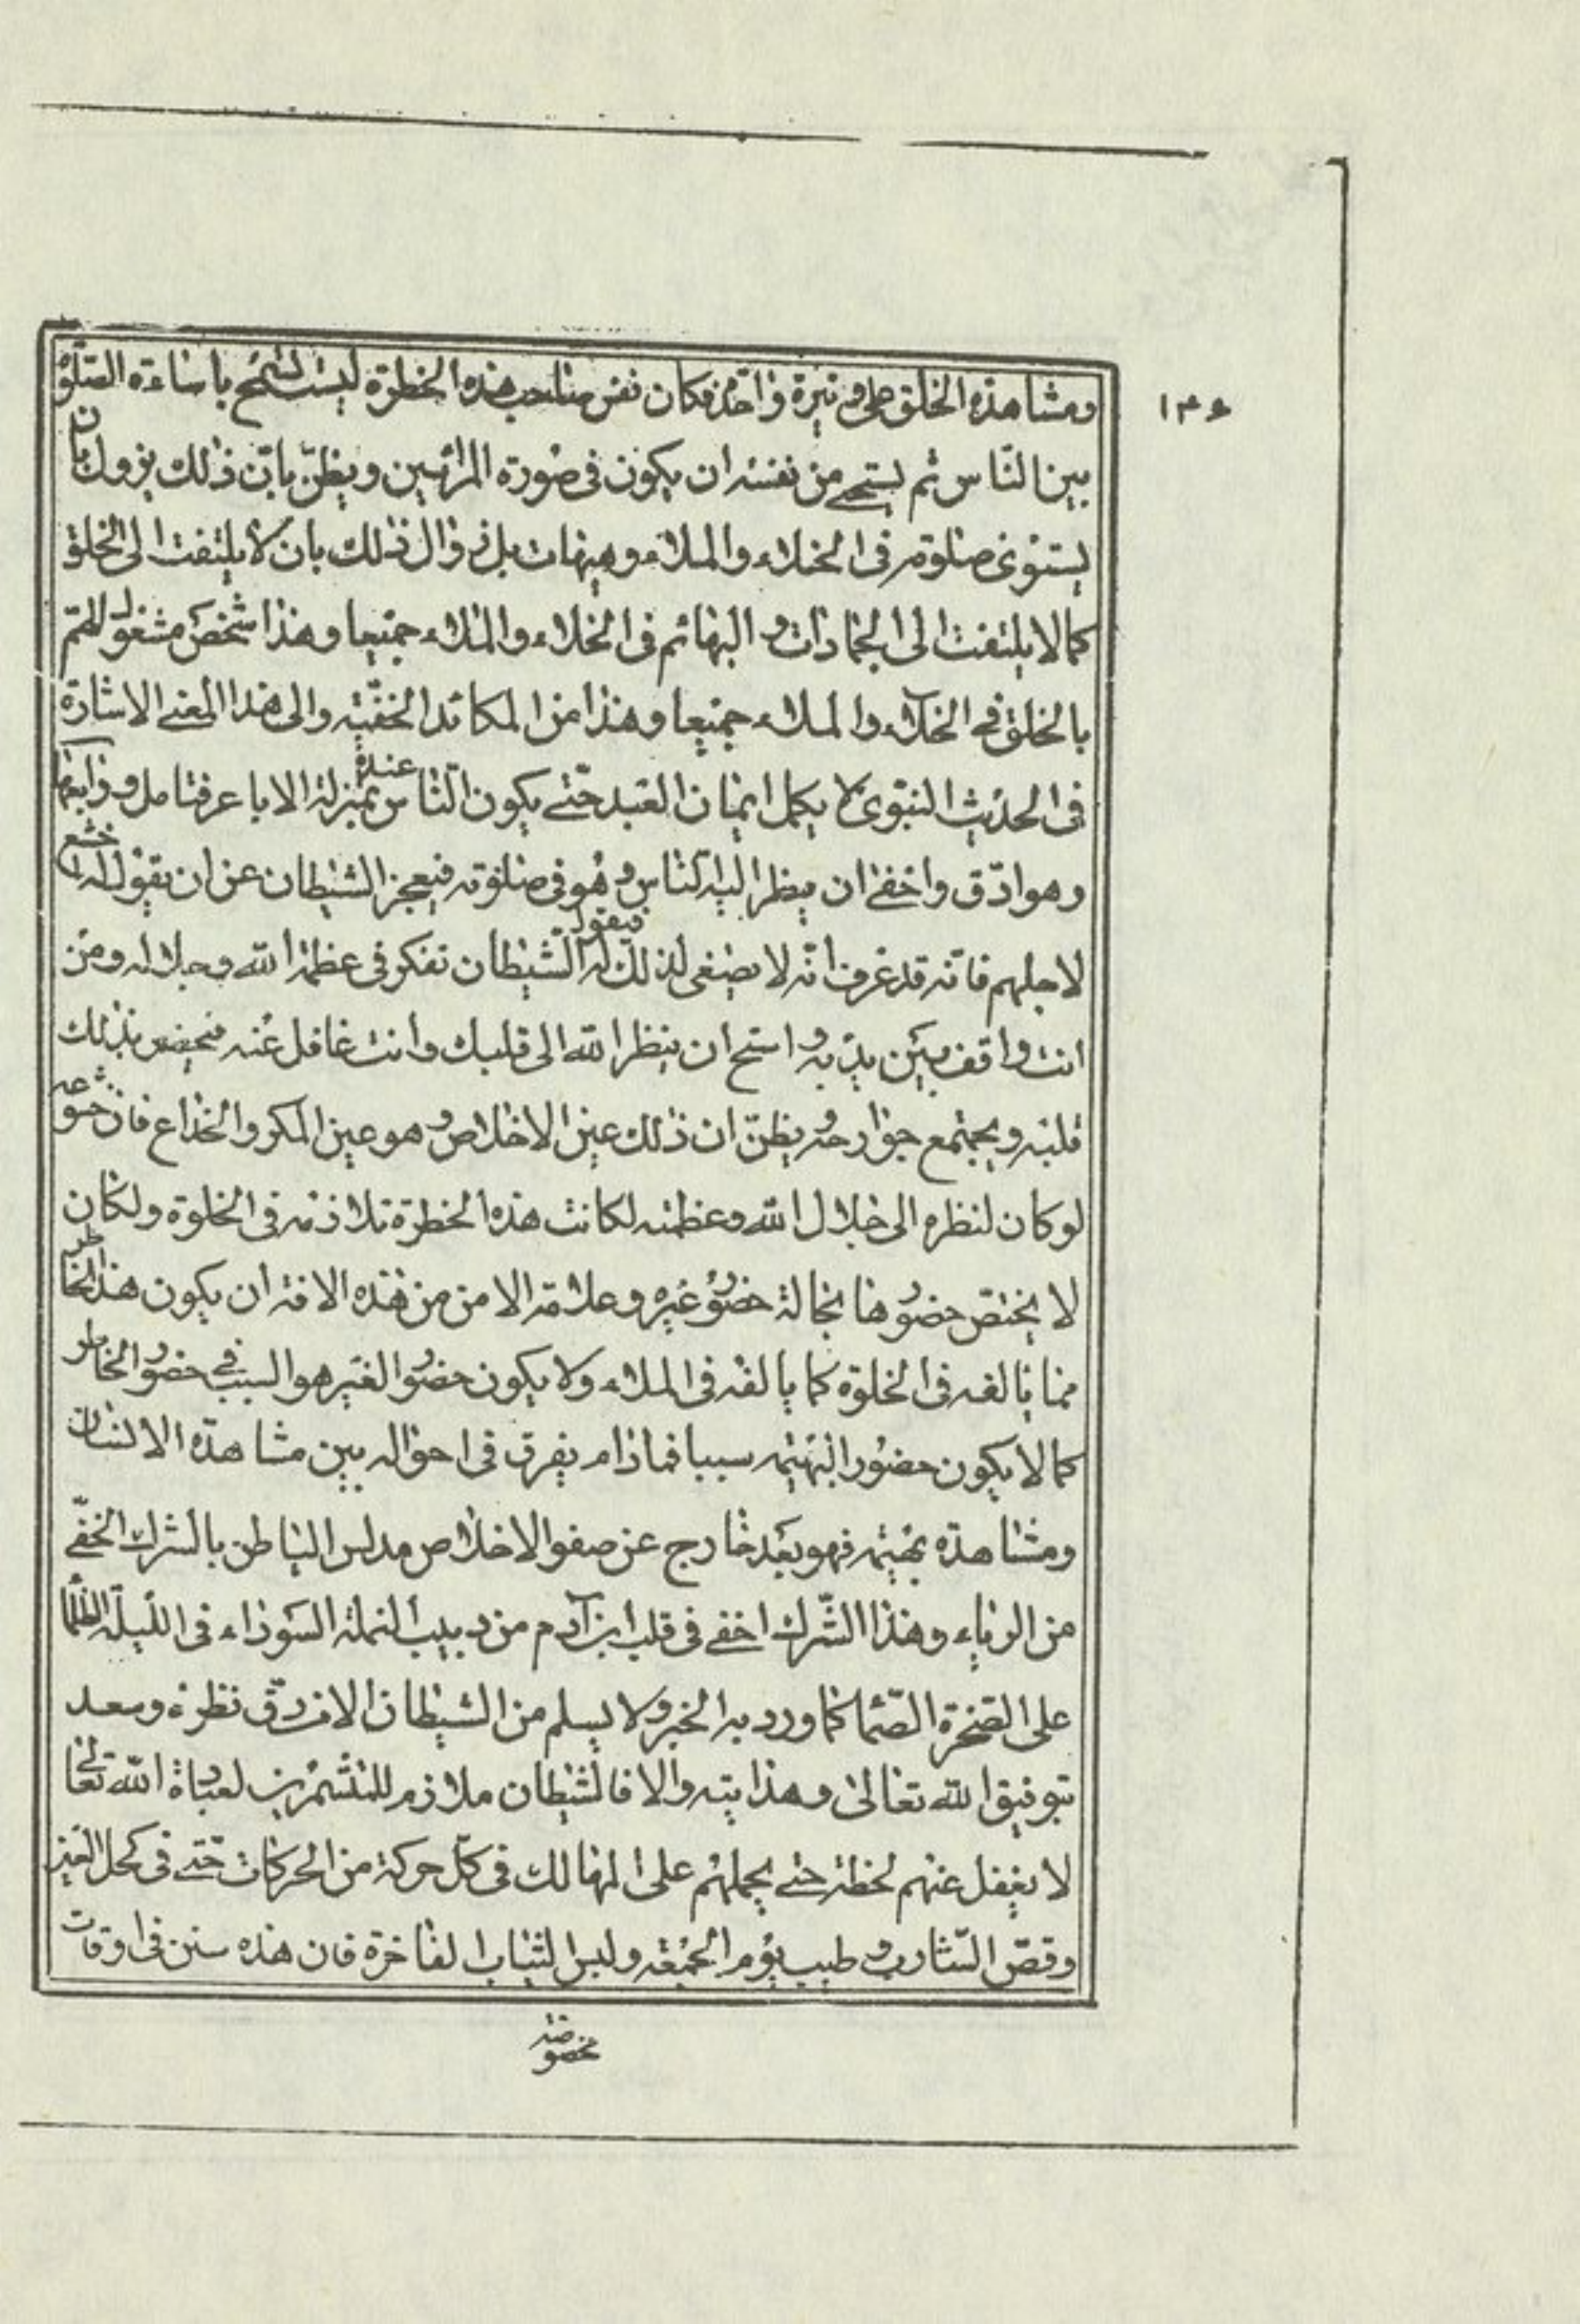 ١٣٤
ومشاهدة الخلق على وتيرة واحدة فكان نفس صاحب هذه الخطرة ليست تسمح باساءة الصلوة
بين الناس ثم يستحيى من نفسه ان يكون فى صورة المرائين ويظن بان ذلك يزول بان
يستوى صلوته فى الخلاء والملاء وهيهات بل زوال ذلك بان لا يلتفت الى الخلق
كما لا يلتفت الى الجمادات والبهائم فى الخلاء والملاء جميعا وهذا شخص مشغول الهم
بالخلق فى الخلاء والملاء جميعا وهذا من المكائد الخفية والى هذا المعنى الاشارة
فى الحديث النبوى لا يكمل ايمان العبد حتى يكون الناس عنده بمنزلة الاباعر فتامل ورابعها
وهو ادق واخفى ان ينظر اليه الناس وهو فى صلوته فيعجز الشيطان عن ان يقول له اخشع
لاجلهم فانه قد عرف انه لا يصغى لذلك فيقول له الشيطان تفكر فى عظمة الله وجلاله ومن
انت واقف بين يديه واستح ان ينظر الله الى قلبك وانت غافل عنه فيحضر بذلك
قلبه ويجتمع جوارحه ويظن ان ذلك عين الاخلاص وهو عين المكر والخداع فان خشوعه
لو كان لنظره الى جلال الله وعظمته لكانت هذه الخطرة تلازمه فى الخلوة ولكان
لا يختص حضورها بحالة حضور غيره وعلامة الامن من هذه الافة ان يكون هذا الخاطر
مما يالفه فى الخلوة كما يالفه فى الملاء ولا يكون حضور الغير هو السبب فى حضور الخاطر
كما لا يكون حضور البهيمة سببا فما دام يفرق فى احواله بين مشاهدة الانسان
ومشاهدة بهيمة فهو بعد خارج عن صفو الاخلاص مدلس الباطن بالشرك الخفى
من الرياء وهذا الشرك اخفى فى قلب ابن آدم من دبيب النملة السوداء فى الليلة الظلماء
على الصخرة الصماء كما ورد به الخبر ولا يسلم من الشيطان الا من دق نظره وسعد
بتوفيق الله تعالى وهدايته والا فالشيطان ملازم للمتشمرين لعبادة الله تعالى
لا يغفل عنهم لحظة حتى يحملهم على المهالك فى كل حركة من الحركات حتى فى كحل العين
وقص الشارب وطيب يوم الجمعة ولبس الثياب الفاخرة فان هذه سنن فى اوقات
مخصوصة